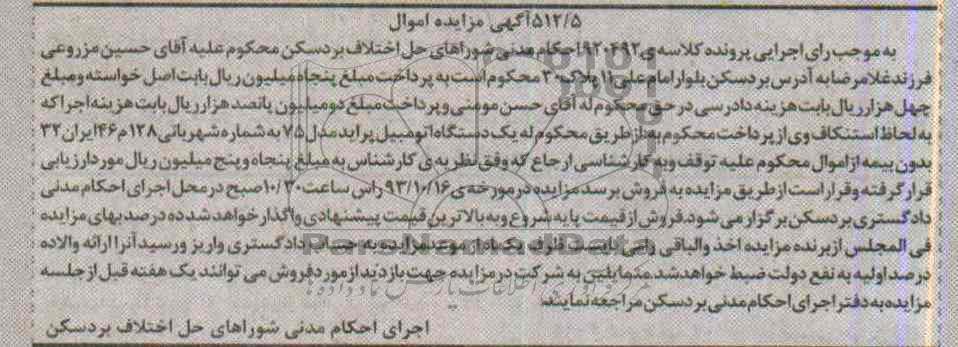 ۵۱۲/۵آگهی مزایده اموال
به موجب رای اجرایی پرونده کلاسه ی۹۲۰۴۹۲احکام مدنی شوراهای حل اختلاف بردسکن محکوم علیه آقای حسین مزروعی
فرزندغلامرضا به آدرس بردسکن بلوارامام علی۱۱ پلاک۳۰ محکوم است به پرداخت مبلغ پنجاه میلیون ریال بابت اصل خواسته ومبلغ
چهل هزارریال بابت هزینه دادرسی درحق محکوم له آقای حسن مومنی وپرداخت مبلغ دومیلیون پانصدهزارریال بابت هزینه اجراکه
به لحاظ استنکاف وی ازپرداخت محکوم به ازطریق محکوم له یک دستگاه اتومبیل پرایدمدل۷۵ به شماره شهربانی۱۲۸م۴۶ایران۳۲
بدون بیمه ازاموال محکوم علیه توقف وبه کارشناسی ارجاع که وفق نظریه ی کارشناس به مبلغ پنجاه وپنج میلیون ریال موردارزیابی
قرارگرفته وقراراست ازطریق مزایده به فروش برسدمزایده درمورخه ی۹۳/۱۰/۱۶راس ساعت۱۰/۳۰صبح درمحل اجرای احکام مدنی
دادگستری بردسکن برگزارمی شود.فروش ازقیمت پایه شروع وبه بالاترین قیمت پیشنهادی واگذارخواهدشدده درصدبهای مزایده
فی المجلس ازبرنده مزایده اخذ والباقی رامی بایست ظرف یک ماه ازموعدمزایده به حساب دادگستری واریز ورسیدآنراارائه والاده
درصداولیه به نفع دولت ضبط خواهدشد.متمایلین به شرکت درمزایده جهت بازدیدازموردفروش می توانندیک هفته قبل ازجلسه
مزایده به دفتراجرای احکام مدنی بردسکن مراجعه نمایند.
اجرای احکام مدنی شوراهای حل اختلاف بردسکن